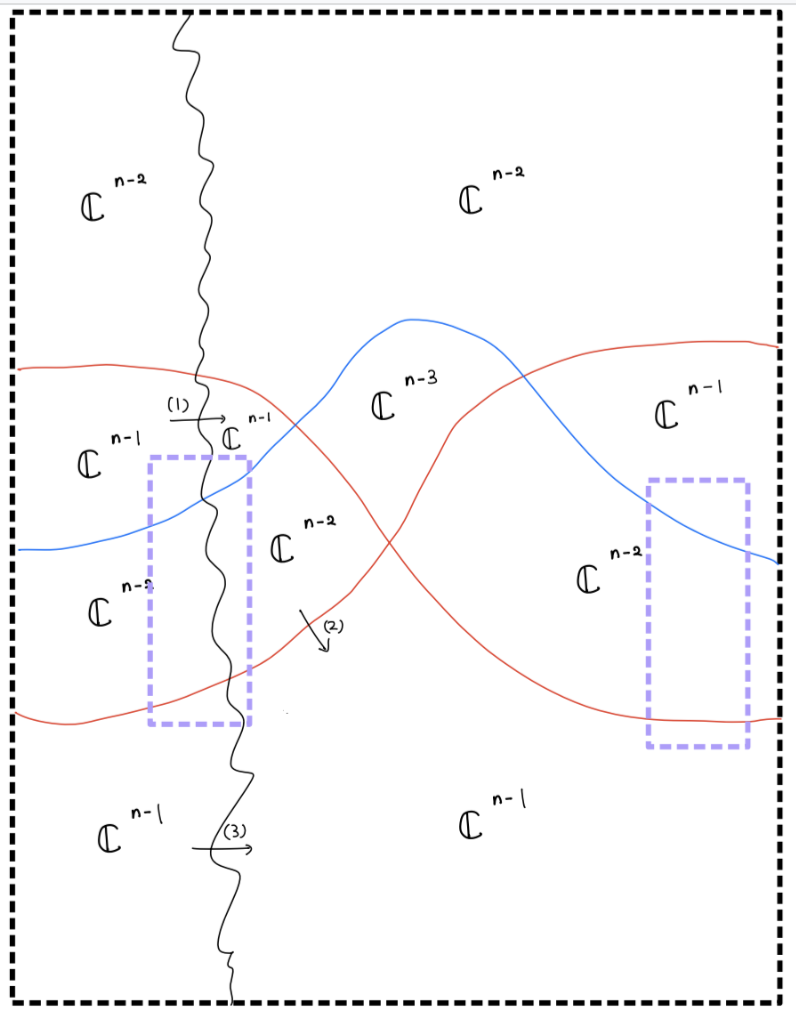 ℂ^{n-2}
ℂ^{n-2}
ℂ^{n-3}
ℂ^{n-1}
(1)
ℂ^{n-1}
ℂ^{n-1}
ℂ^{n-2}
ℂ^{n-2}
(2)
ℂ^{n-1}
ℂ^{n-1}
(3)